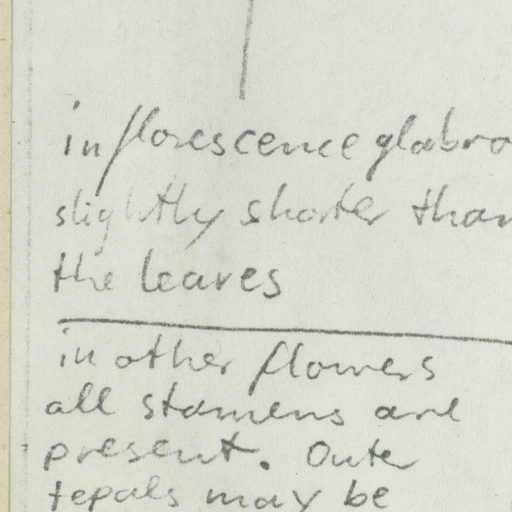 inflorescence glabro
slightly shorter than
the leaves
in other flowers
all stamens are
present. Outer
tepals may be